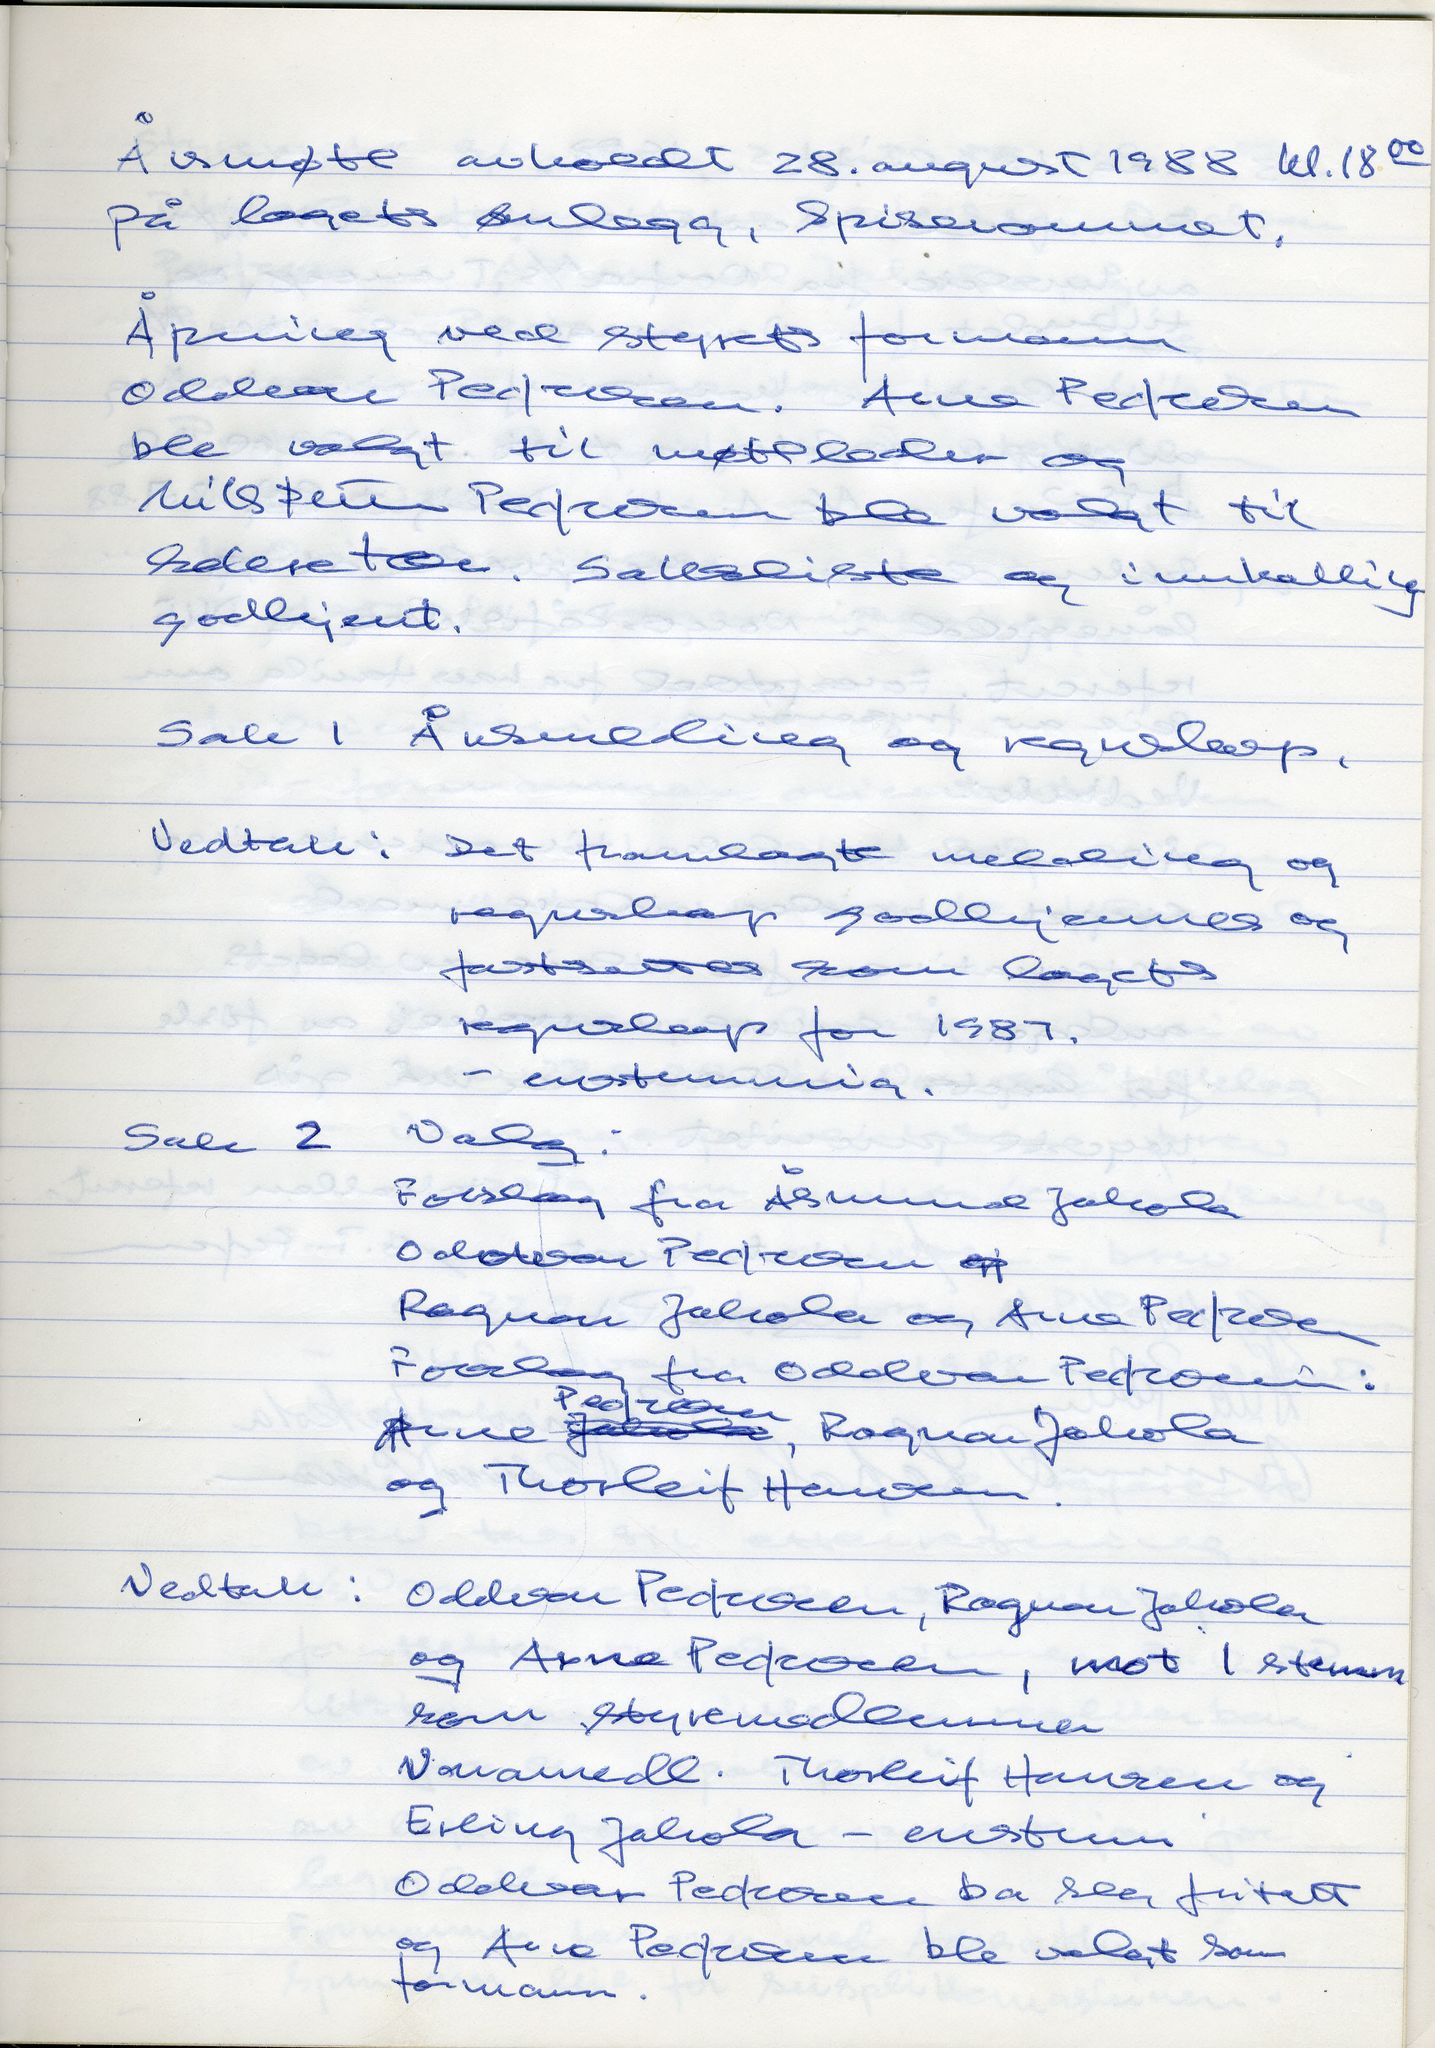 Årsmøte avholdt 28. august 1988 kl. 18 00
på lagets anlegg, Spiserommet.
Åpning ved styrets formann
Oddvar Pedersen. Arne Pedersen
ble valgt til møteleder og
Nils Petter Pedersen ble valgt til
sekretær. Saksliste og innkalling
godkjent.
Sak 1 Årsmelding og regnskap.
Vedtak: Det framlagte melding og
regnskap godkjennes og
fastsettes som lagets
regnskap for 1987.
- enstemmig.
Sak 2 Valg:
Forslag fra Åsmund Jakola
Oddvar Pedersen
Ragnar Jakola og Arne Pedersen
Forslag fra Oddvar Pedersen:
Pedersen
Arne Jakola, Ragnar Jakola
og Thorleif Hansen.
Vedtak: Oddvar Pedersen, Ragnar Jakola
og Arne Pedersen, mot 1 stemm
som styremedlemmer
Varamedl. Thorleif Hansen og
Erling Jakola - enstem
Oddvar Pedersen ba seg fritatt
og Arne Pedersen ble valgt som
formann.